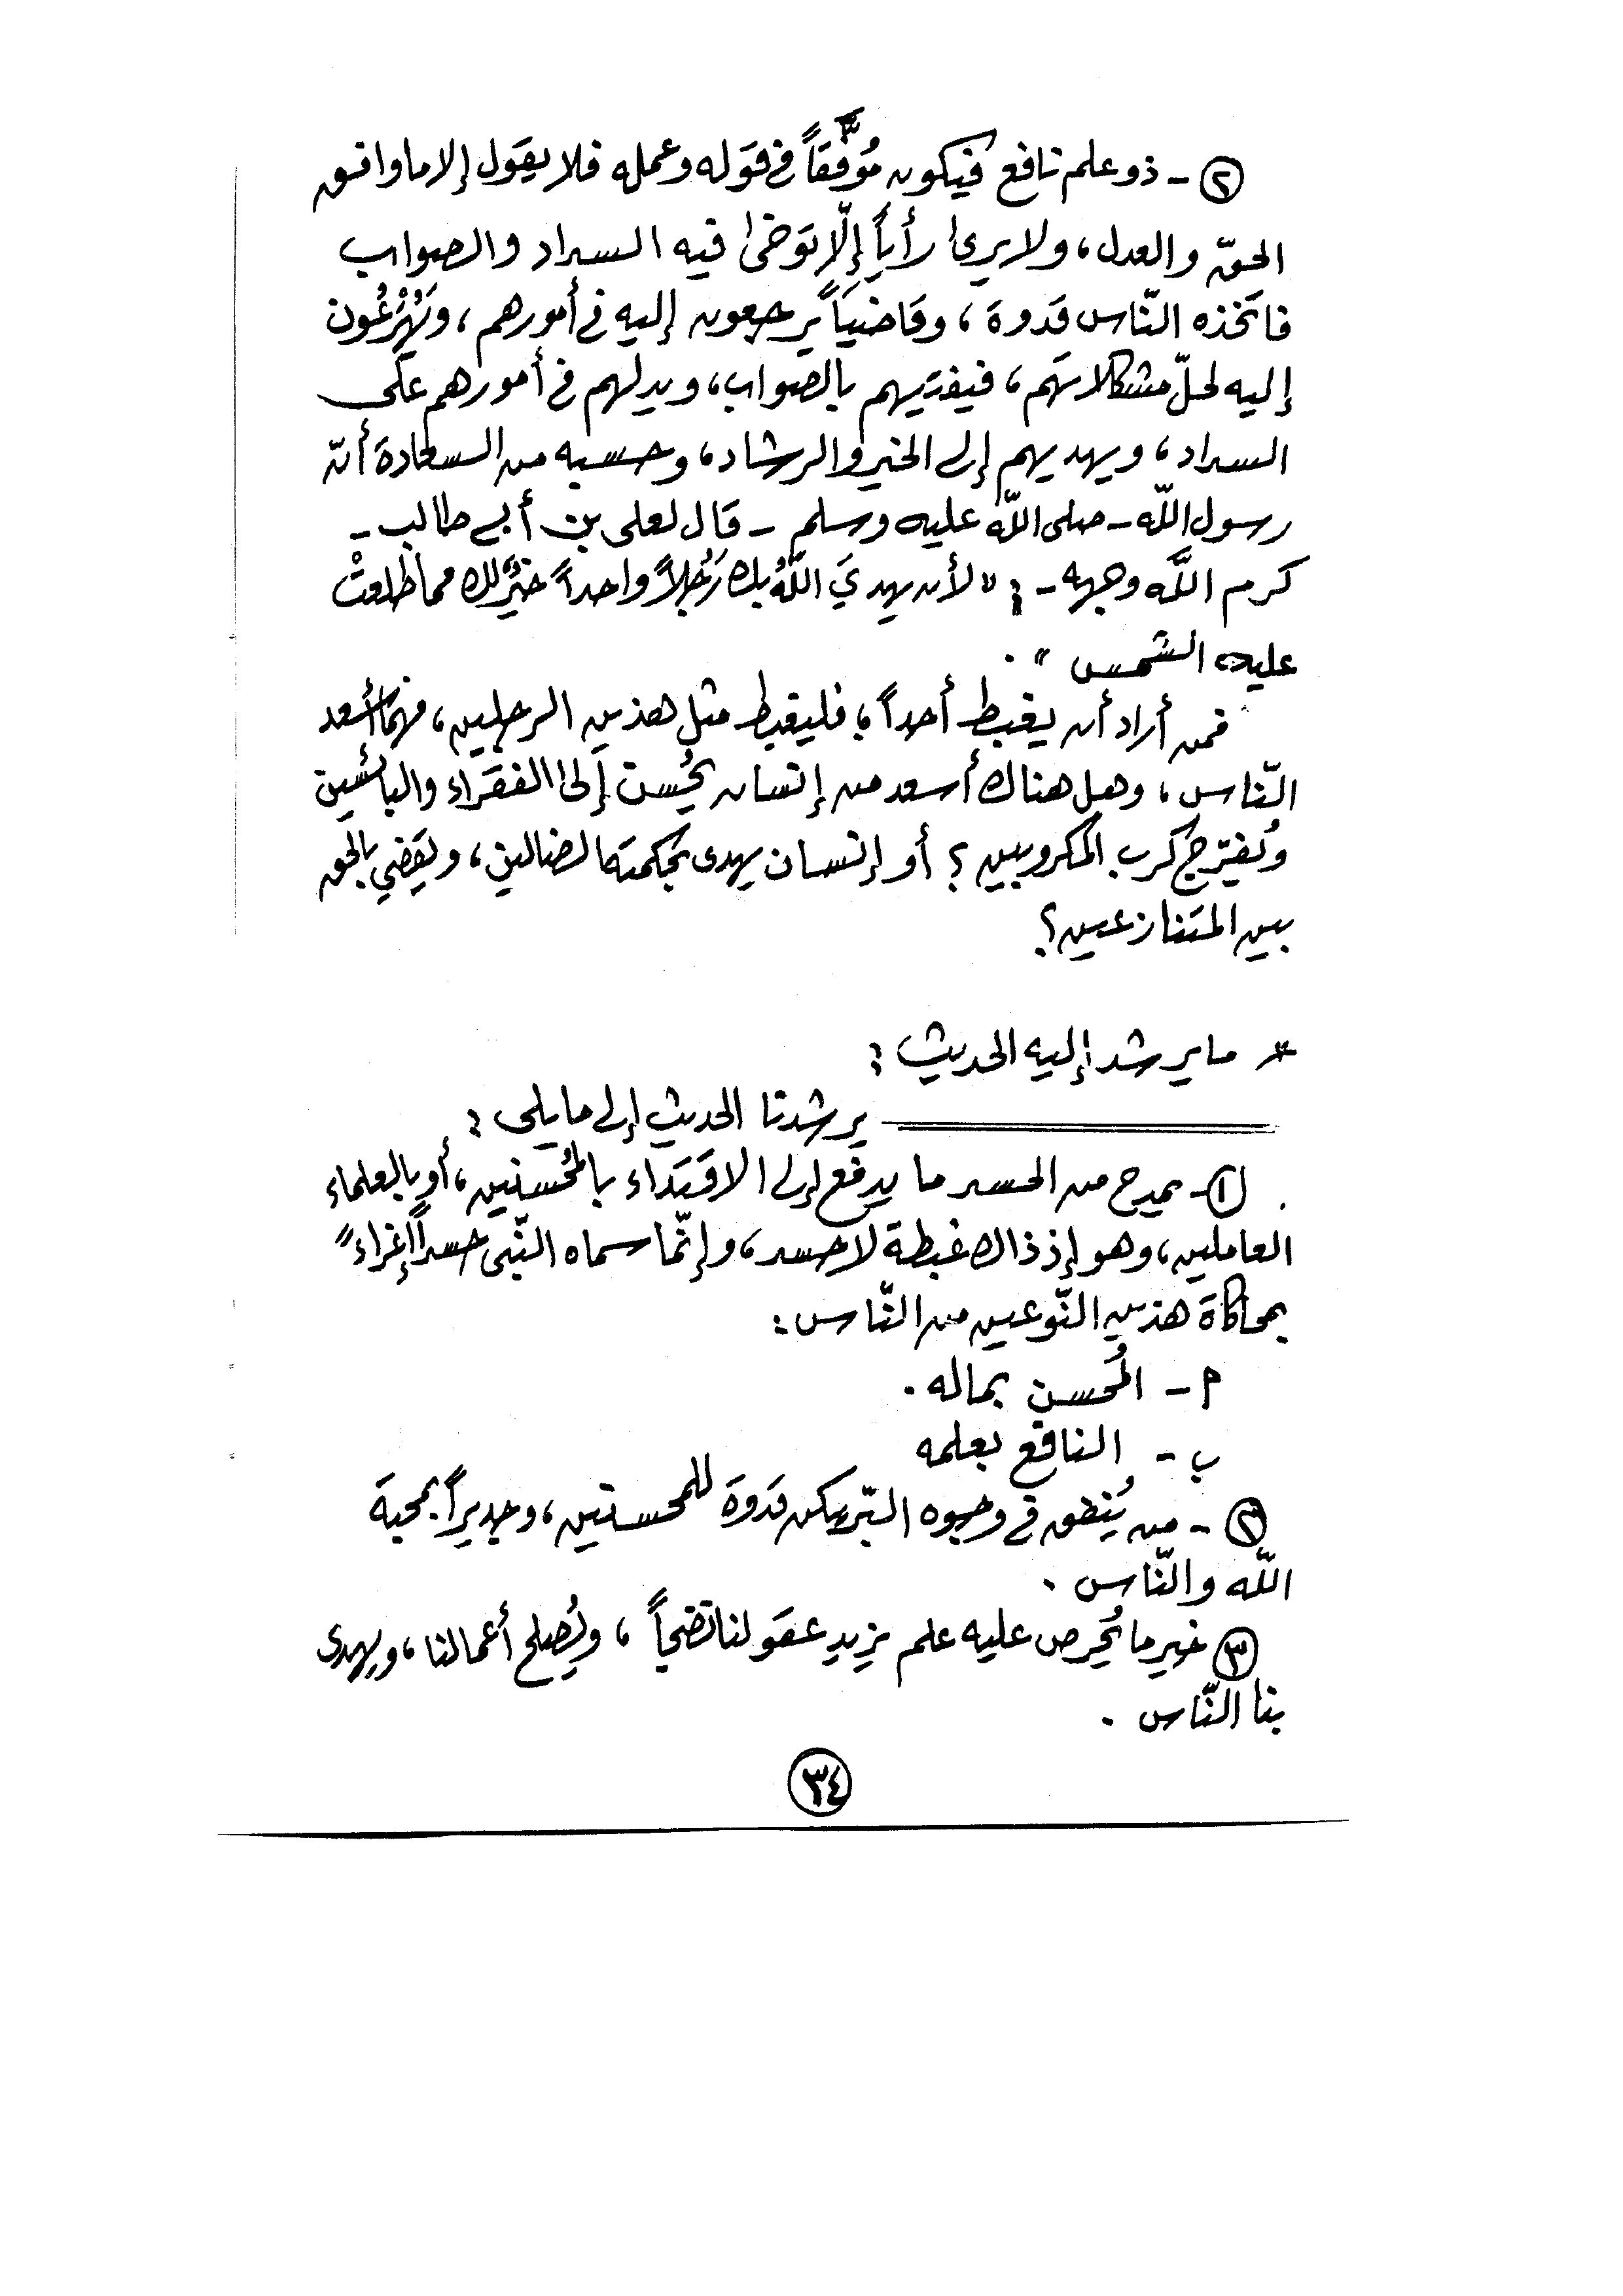 ٢ - ذو علم نافع فيكون مُوَفَّقاً في قوله وعمله فلا يقول إلا ما وافق
الحقّ والعدل، ولا يرى رأياً إلّا توخى فيه السداد والصواب
فاتخذه النّاس قدوة، وقاضياً يرجعون إليه في أمورهم، ويُهْرَعُون
إليه لحلّ مشكلاتهم، فيفتيهم بالصواب، ويدلهم في أمورهم على
السداد، ويهديهم إلى الخير والرشاد، وحسبه من السعادة أنّ
رسول اللّه - صلى اللّه عليه وسلم - قال لعلى بن أبي طالب -
كرم اللَّه وجهه - : " لأن يهديَ اللَّهُ بك رَجُلاً واحداً خيرٌ لك مما طلعتْ
عليه الشمس " .
فمن أراد أن يغبط أحداً، فليغبط مثل هذين الرجلين، فهما أسعد
النّاس، وهل هناك أسعد من إنسان يُحسن إلى الفقراء والبائسين
ويُفرّج كرب المكروبين ؟ أو إنسان يهدى بحكمته الضالين، ويقضي بالحق
بين المتنازعين؟
* ما يرشد إليه الحديث :
يرشدنا الحديث إلى ما يلى :
١ - يمدح من الحسد ما يدفع إلى الاقتداء بالمُحسنين، أو بالعلماء
العاملين، وهو إذ ذاك غبطة لا حسد، وإنّما سماه النّبى حسداً إغراءً
بمحاكاة هذين النّوعين من النّاس :
أ - المُحسن بماله .
ب - النافع بعلمه
٢ - من يُنفق في وجوه البّر يكن قدوة للمحسنين، وجديراً بمحبة
اللّه والنّاس .
٣ خير ما يُحرص عليه علم يزيد عقولنا نضجاً ، ويُصلح أعمالنا، ويهدى
بنا النّاس .
٣٤